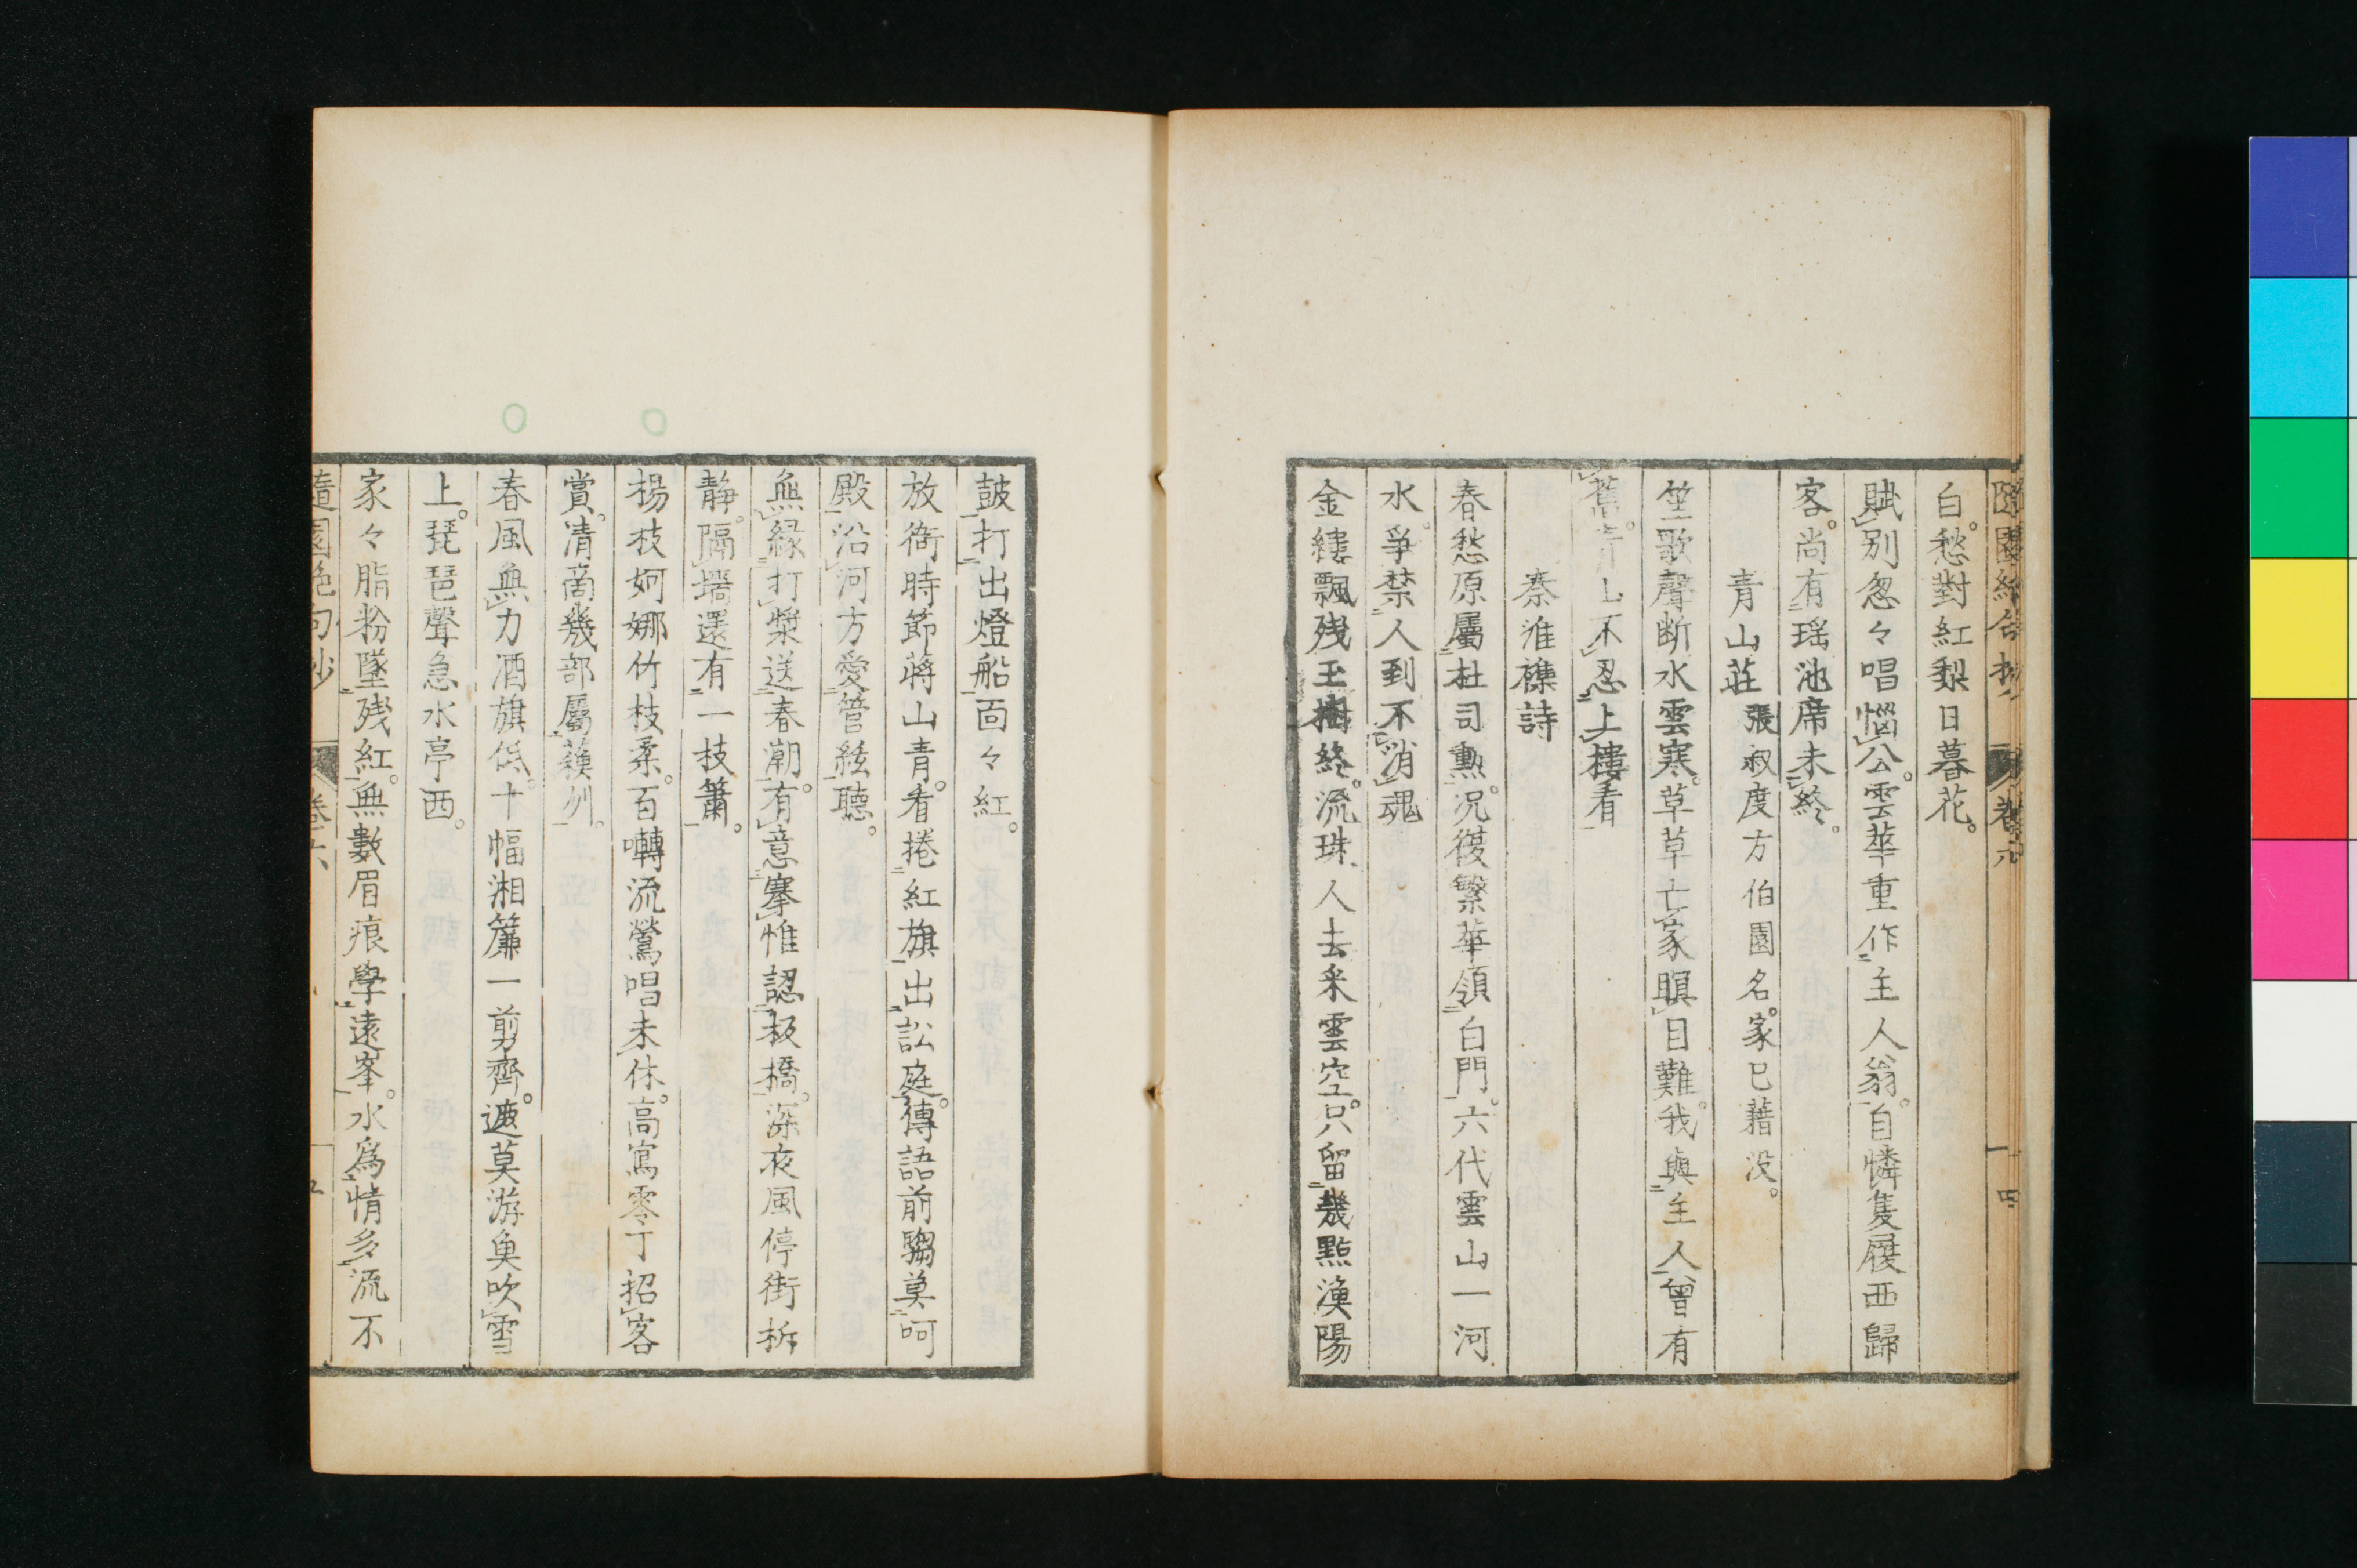 隨園絕句抄 卷六 四
白。愁對紅梨日暮花。
賦別怱々唱惱公。雲華重作主人翁。自憐隻履西歸
客。尚有瑶池席未終。
青山莊 張叔度方伯園名。家已藉没。
笙歌聲断水雲寒。草草亡家瞑目難。我與主人曾有
舊。青山不忍上樓看
秦淮襍詩
春愁原屬杜司勲。况復繁華領白門。六代雲山一河
水。爭禁人到不消魂
金縷飄残玉樹終。流珠人去釆雲空。只留幾點漁陽
鼓打出燈船面々紅。
放衙時節蔣山青。看捲紅旗出訟庭。傳語前騶莫呵
殿沿河方愛管絃聽。
無縁打槳送春潮。有意搴帷認板橋。深夜風停街柝
靜。隔墻還有一枝簫。
楊枝妸娜竹枝柔。百囀流鶯唱未休。高寫零丁招客
賞。清商幾部屬蘋州。
春風無力酒旗低。十幅湘簾一剪齊。遮莫游魚吹雪
上。琵琶聲急水亭西。
家々脂粉墜残紅。無數眉痕學遠峯。水爲情多流不
隨園絕句抄 卷六